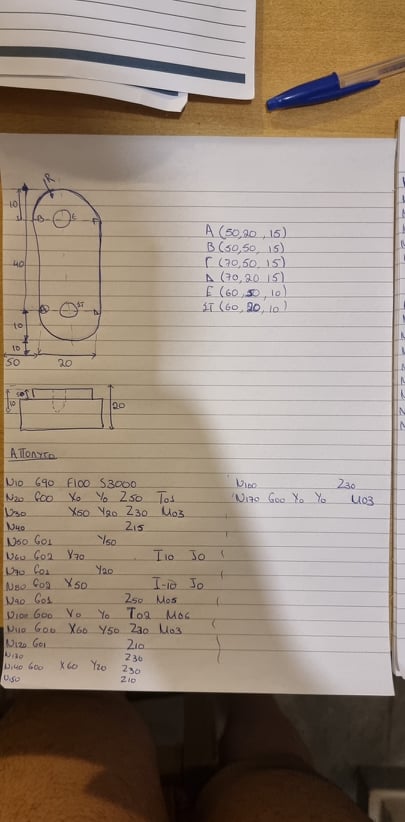 R
10
B
E
Γ
40
A
ΣΤ
Δ
10
10
50 20
10
20
A (50,20, 15)
B (50,50, 15)
Γ (70,50, 15)
Δ (70,20 15)
E (60, 50, 10)
ΣΤ (60, 20, 10)
ΑΠΟΛΥΤΟ
N10 G90 F100 S3000
N20 G00 X0 Y0 Z50 T01
N30 X50 Y20 Z30 M03
N40 Z15
N50 G01 Y50
N60 G02 X70 I10 J0
N70 G01 Y20
N80 G02 X50 I-10 J0
N90 G01 Z50 M05
N100 G00 X0 Y0 T02 M06
N110 G00 X60 Y50 Z30 M03
N120 G01 Z10
N130 Z30
N140 G00 X60 Y20 Z30
N150 Z10
N160 Z30
N170 G00 X0 Y0 M03